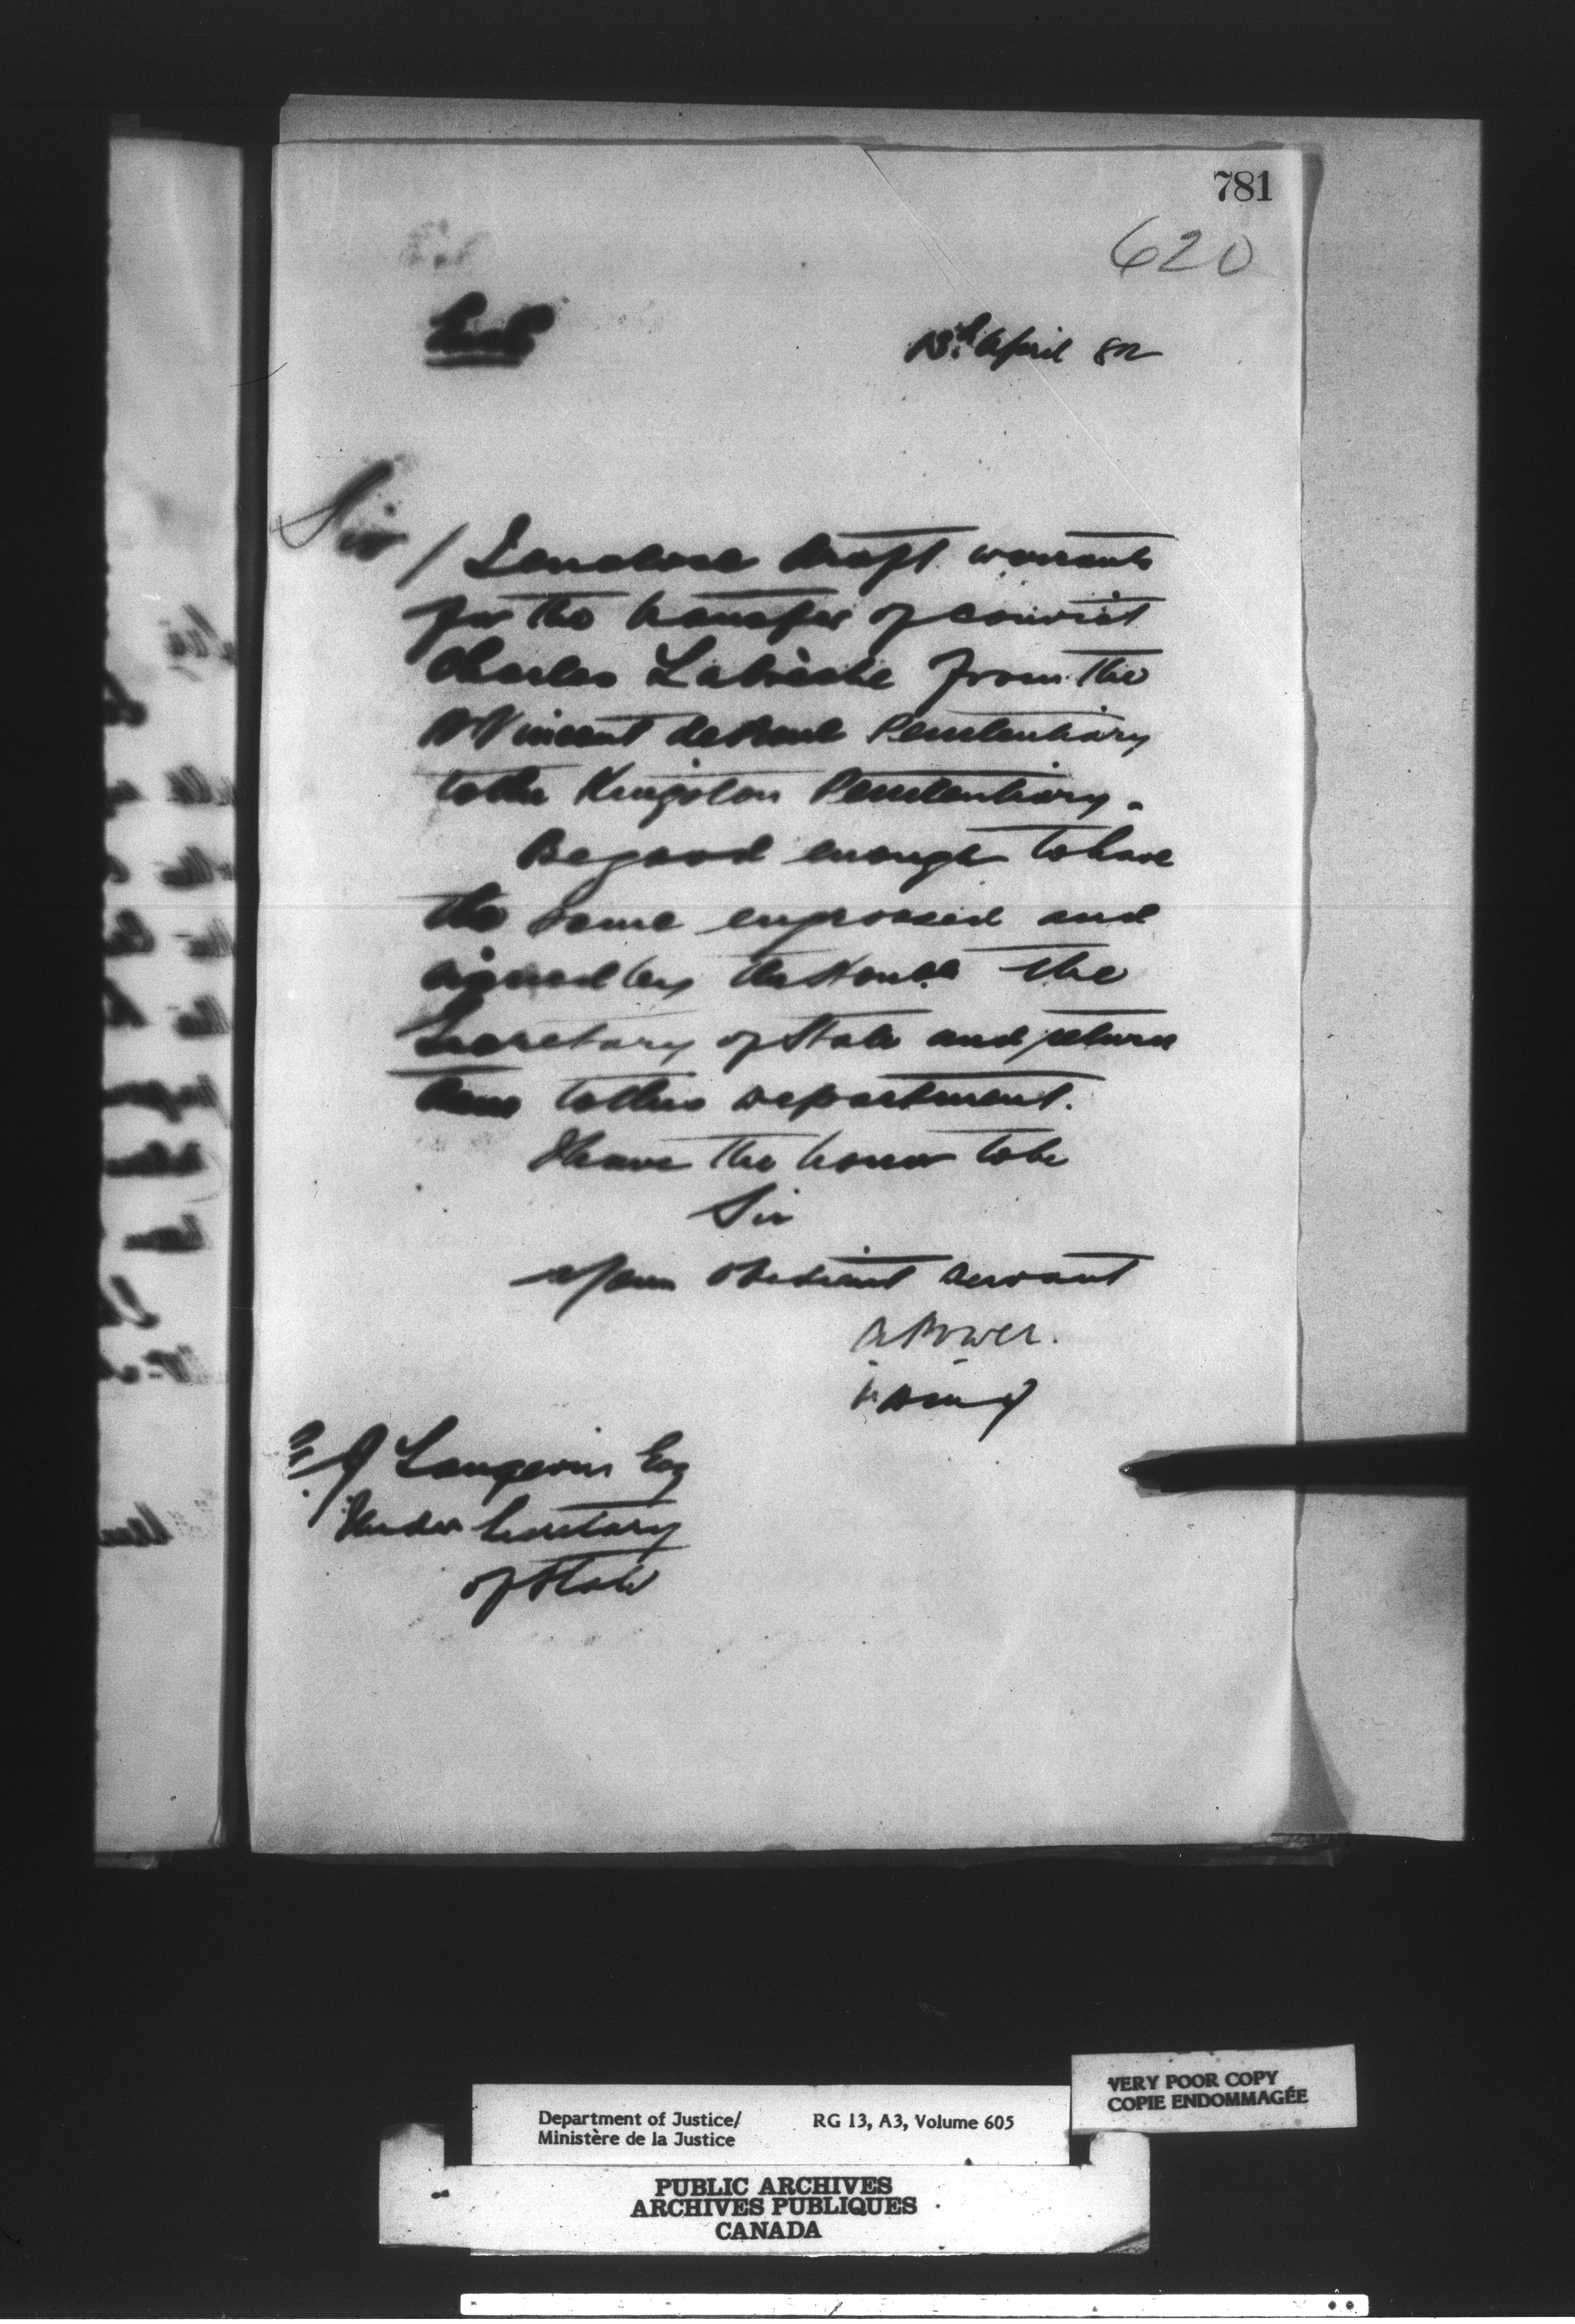 781
620
13th April 82
Sir /
I enclose draft warrants
for the transfer of convict
Charles Labrèche from the
St Vincent de Paul Penitentiary
to the Kingston Penitentiary.
Be good enough to have
the same engrossed and
signed by the Honble the
Secretary of State and return
them to this department.
I have the honor to be
Sir
Your obedient servant
A Power.
J Langevin Esq
Under Secretary
of State
VERY POOR COPY
COPIE ENDOMMAGÉE
Department of Justice/ RG 13, A3, Volume 605
Ministère de la Justice
PUBLIC ARCHIVES
ARCHIVES PUBLIQUES
CANADA